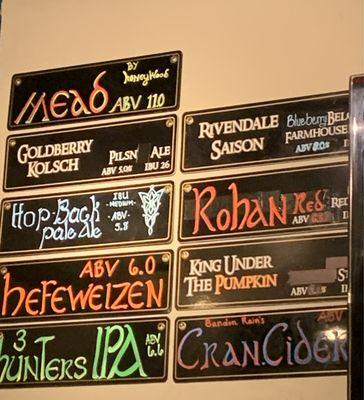 Mead
BY
HoneyWood
ABV 110
GOLDBERRY
KOLSCH
PILSN ALE
ABV 5.0% IBU 26
Hop-Back
pale ale
IBU
-MEDIUM-
-ABV-
5.8
ABV 6.0
HEFEWEIZEN
3
HUNTERS IPA
ABV
6.6
RIVENDALE
SAISON
Blueberry BELG
FARMHOUSE
ABV 8.0%
Rohan Red
RE
ABV
KING UNDER
THE PUMPKIN
ABV
Bandon Rain's
ABV
CRAN.CIDER